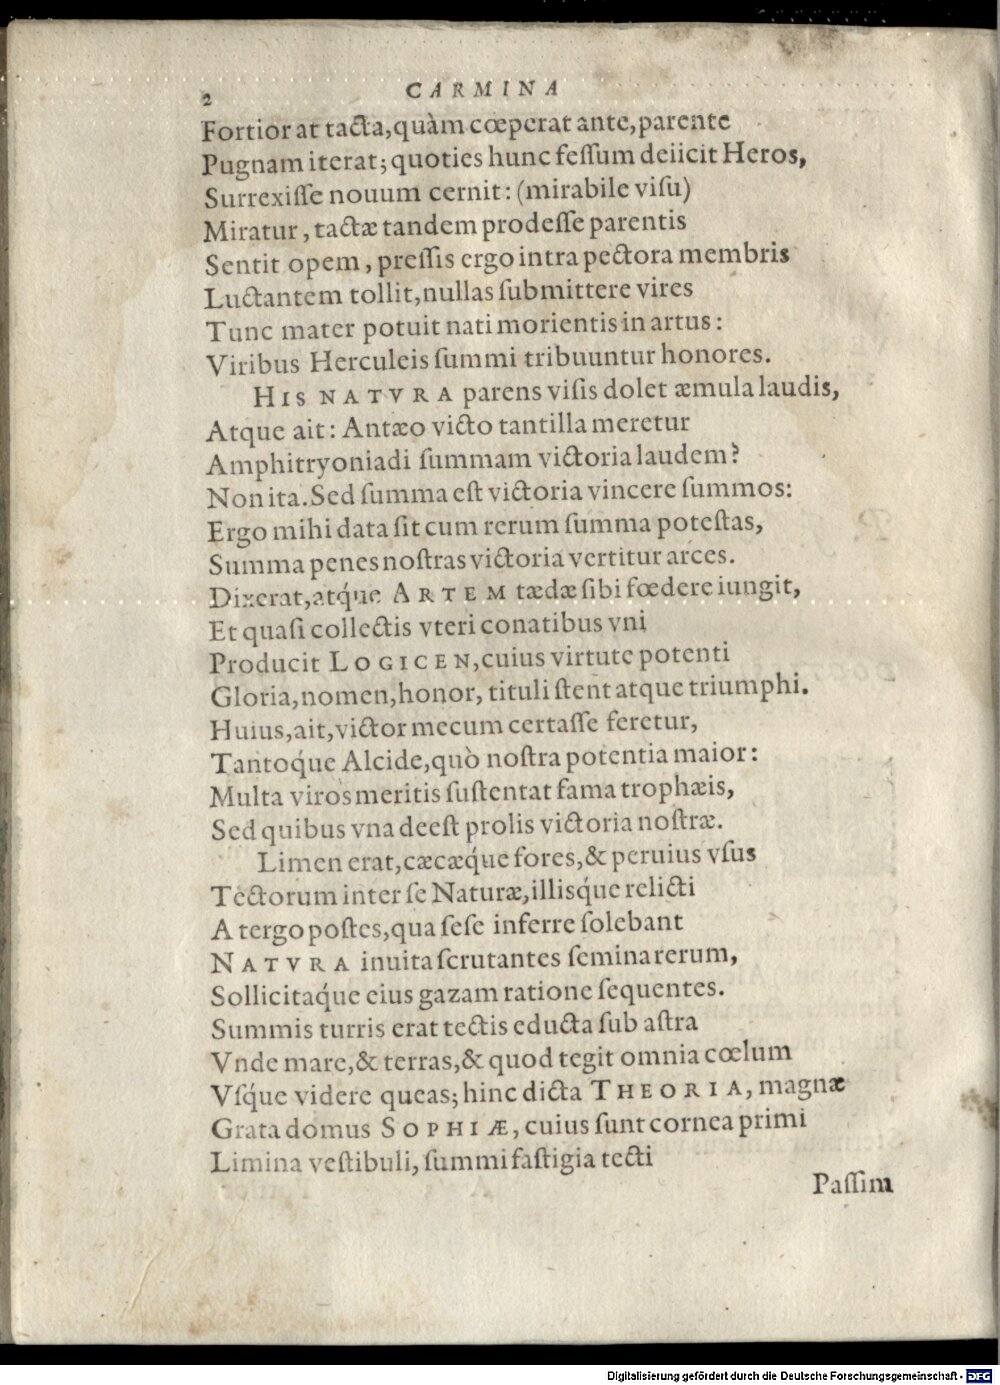 2 CARMINA
Fortior at tacta, quàm cœperat ante, parente
Pugnam iterat; quoties hunc feſſum deiicit Heros,
Surrexiſſe nouum cernit: (mirabile viſu)
Miratur, tactæ tandem prodeſſe parentis
Sentit opem, preſſis ergo intra pectora membris
Luctantem tollit, nullas ſubmittere vires
Tunc mater potuit nati morientis in artus:
Viribus Herculeis ſummi tribuuntur honores.
HIS NATVRA parens viſis dolet æmula laudis,
Atque ait: Antæo victo tantilla meretur
Amphitryoniadi ſummam victoria laudem?
Non ita. Sed ſumma eſt victoria vincere ſummos:
Ergo mihi data ſit cum rerum ſumma poteſtas,
Summa penes noſtras victoria vertitur arces.
Dixerat, atq́ue ARTEM tædæ ſibi fœdere iungit,
Et quaſi collectis vteri conatibus vni
Producit LOGICEN, cuius virtute potenti
Gloria, nomen, honor, tituli ſtent atque triumphi.
Huius, ait, victor mecum certaſſe feretur,
Tantoq́ue Alcide, quò noſtra potentia maior:
Multa viros meritis ſuſtentat fama trophæis,
Sed quibus vna deeſt prolis victoria noſtræ.
Limen erat, cæcæq́ue fores, & peruius vſus
Tectorum inter ſe Naturæ, illisq́ue relicti
A tergo poſtes, qua ſeſe inferre ſolebant
NATVRA inuita ſcrutantes ſemina rerum,
Sollicitaq́ue eius gazam ratione ſequentes.
Summis turris erat tectis educta ſub aſtra
Vnde mare, & terras, & quod tegit omnia cœlum
Vſq́ue videre queas; hinc dicta THEORIA, magnæ
Grata domus SOPHIÆ, cuius ſunt cornea primi
Limina veſtibuli, ſummi faſtigia tecti
Paſſim
Digitalisierung gefördert durch die Deutsche Forschungsgemeinschaft - DFG